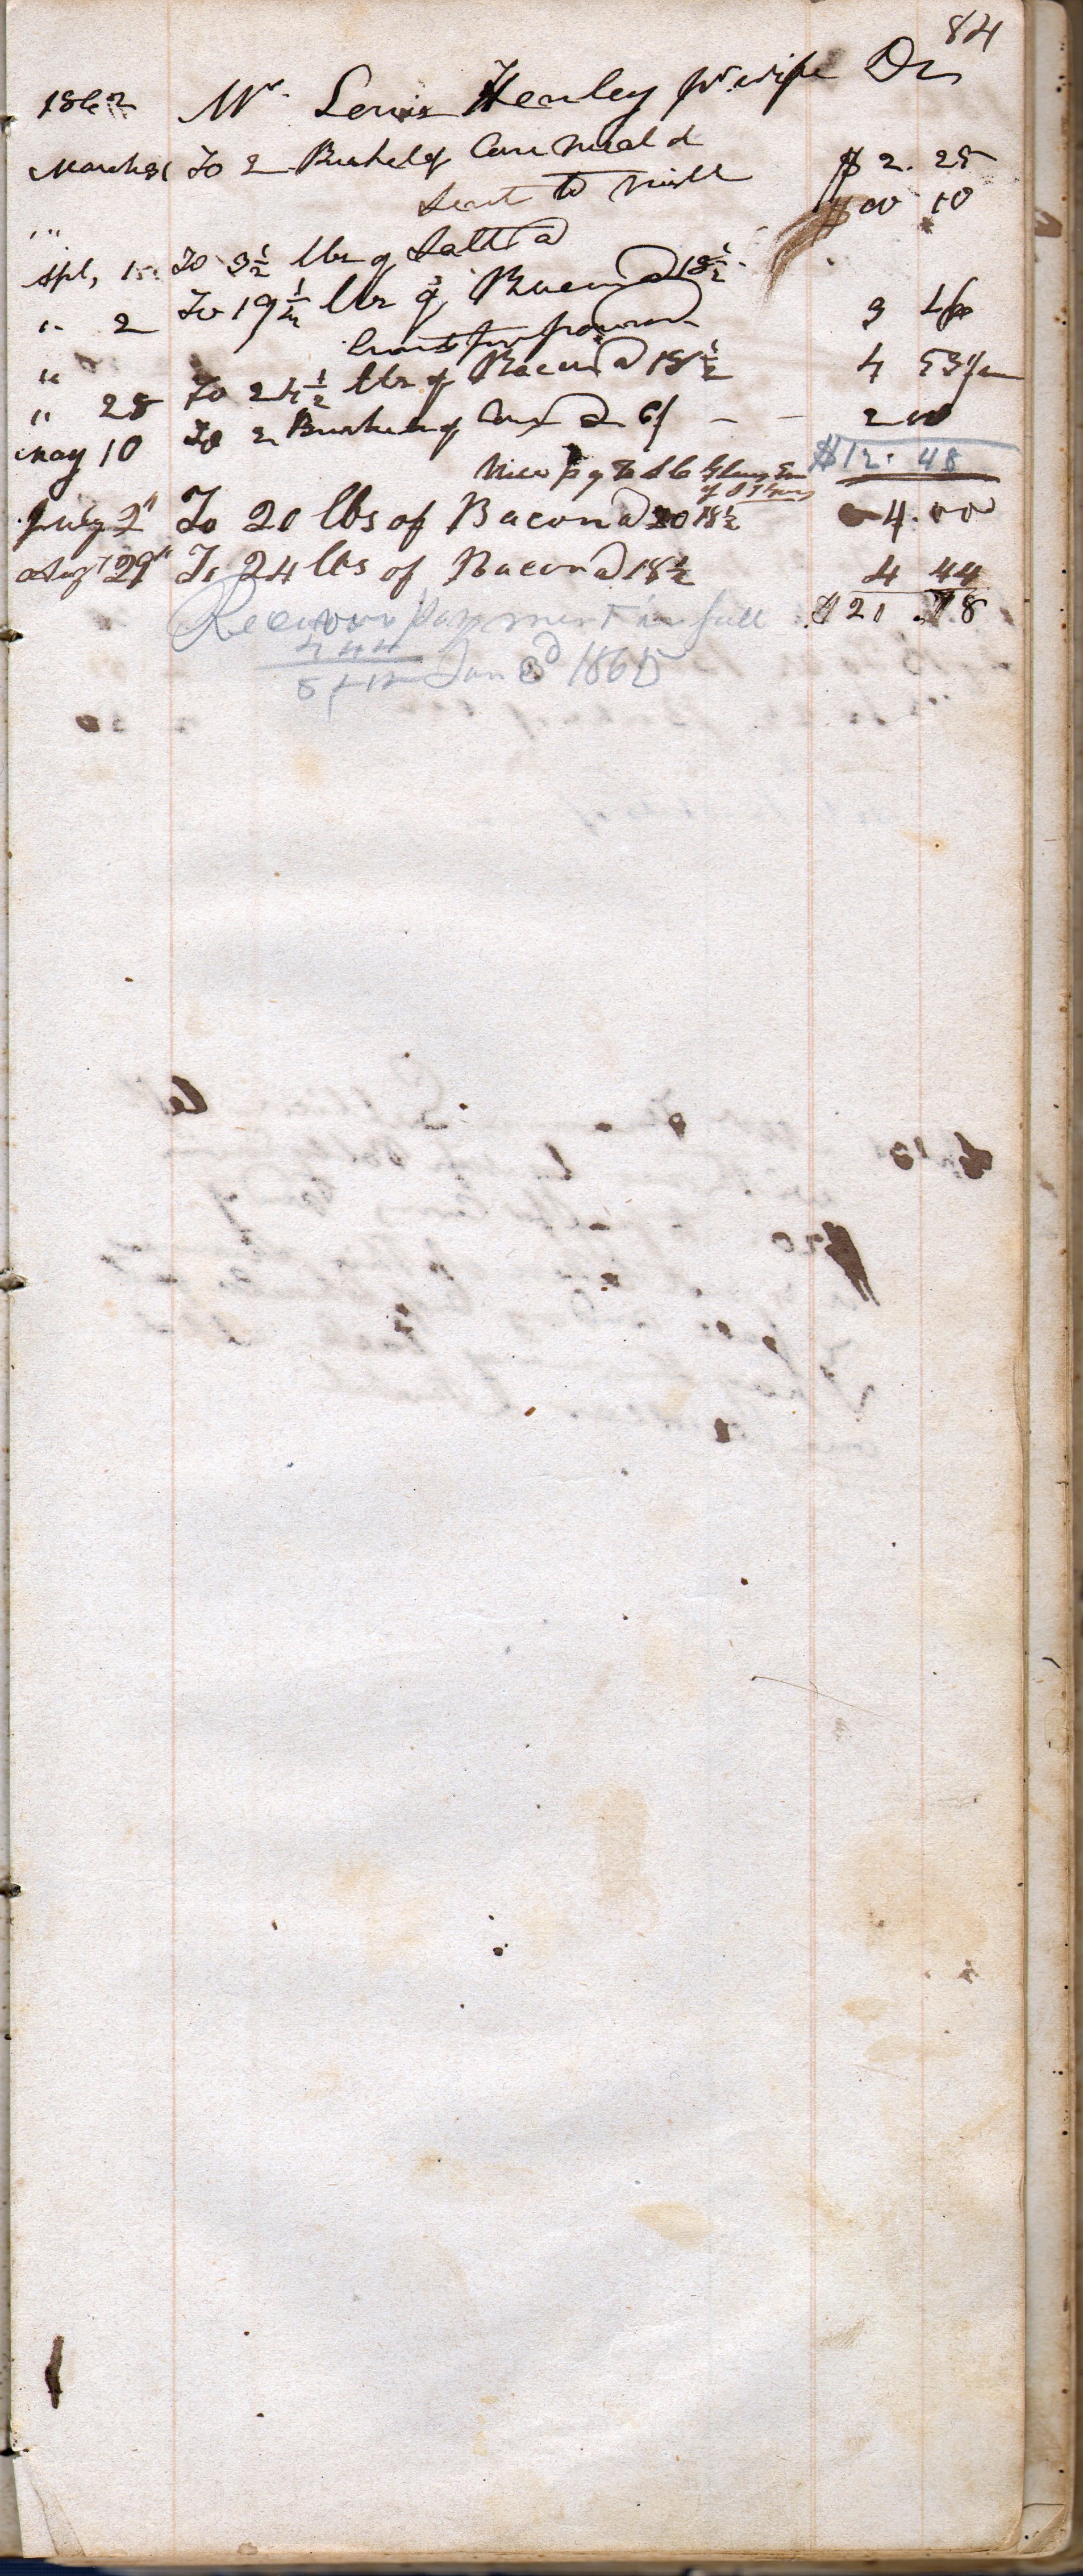 84
1862 Mr. Lewis Henley pr. wife Dr
March 31 To 2 Bushel of Corn Meal d $2. 25
Sent to Mill $00 10
"
Apl, 15 To 3 1/2 lbs of Salt @
" 2 To 19 1/4 lbs of Bacon @ 18 1/2 3
"
" 28 To 24 1/2 lbs of Bacon @ 18 1/2 4 53
May 10 To 2 Bushel of Corn @ 6/ — — 2 00
$12. 48
July 2" To 20 lbs of Bacon @ 20 18 1/2 4.00
Augt 29" To 24 lbs of Bacon @ 18 1/2 4 44
$21 .18
payment in full
4 44
Jan 3d 1865